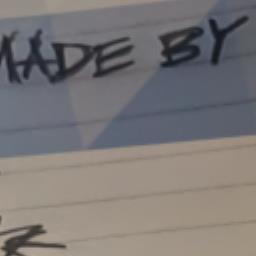 MADE BY